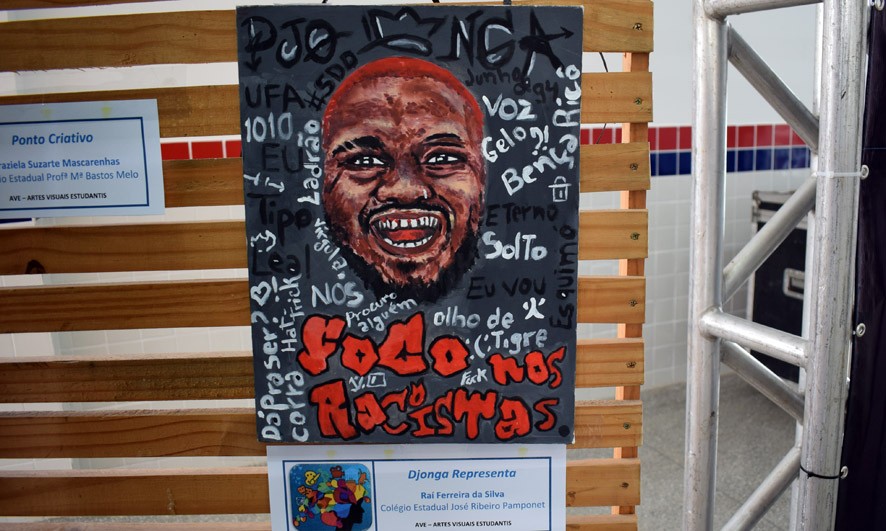 DJONGA
UFA
#SDD
Junho
94
1010
Ladrão
VOZ
Gelo
Bença
Rico
EU
Tipo
Leal
Vírgula
Eterno
SOLTO
Esquimó
NOS
Eu vou
Procuro
alguém
olho de
Tigre
Dá Pra Ser?
Corra
Hat
Trick
FOGO
NOS
RACISTAS.
Fuck
Ponto Criativo
raziela Suzarte Mascarenhas
io Estadual Profª Mª Bastos Melo
AVE – ARTES VISUAIS ESTUDANTIS
Djonga Representa
Raí Ferreira da Silva
Colégio Estadual José Ribeiro Pamponet
AVE – ARTES VISUAIS ESTUDANTIS